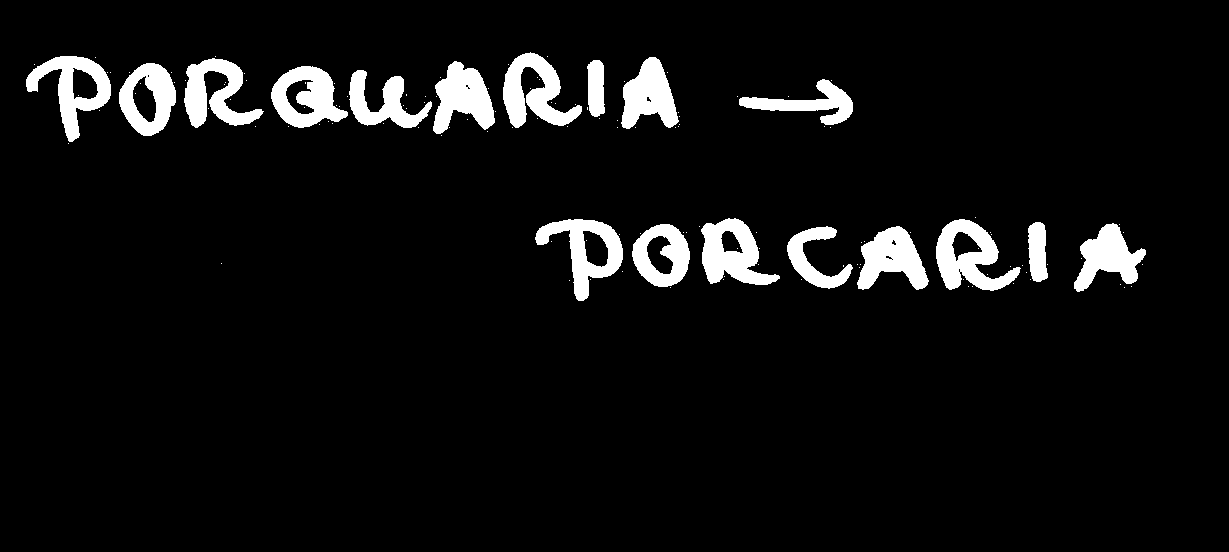 PORQUARIA →
PORCARIA